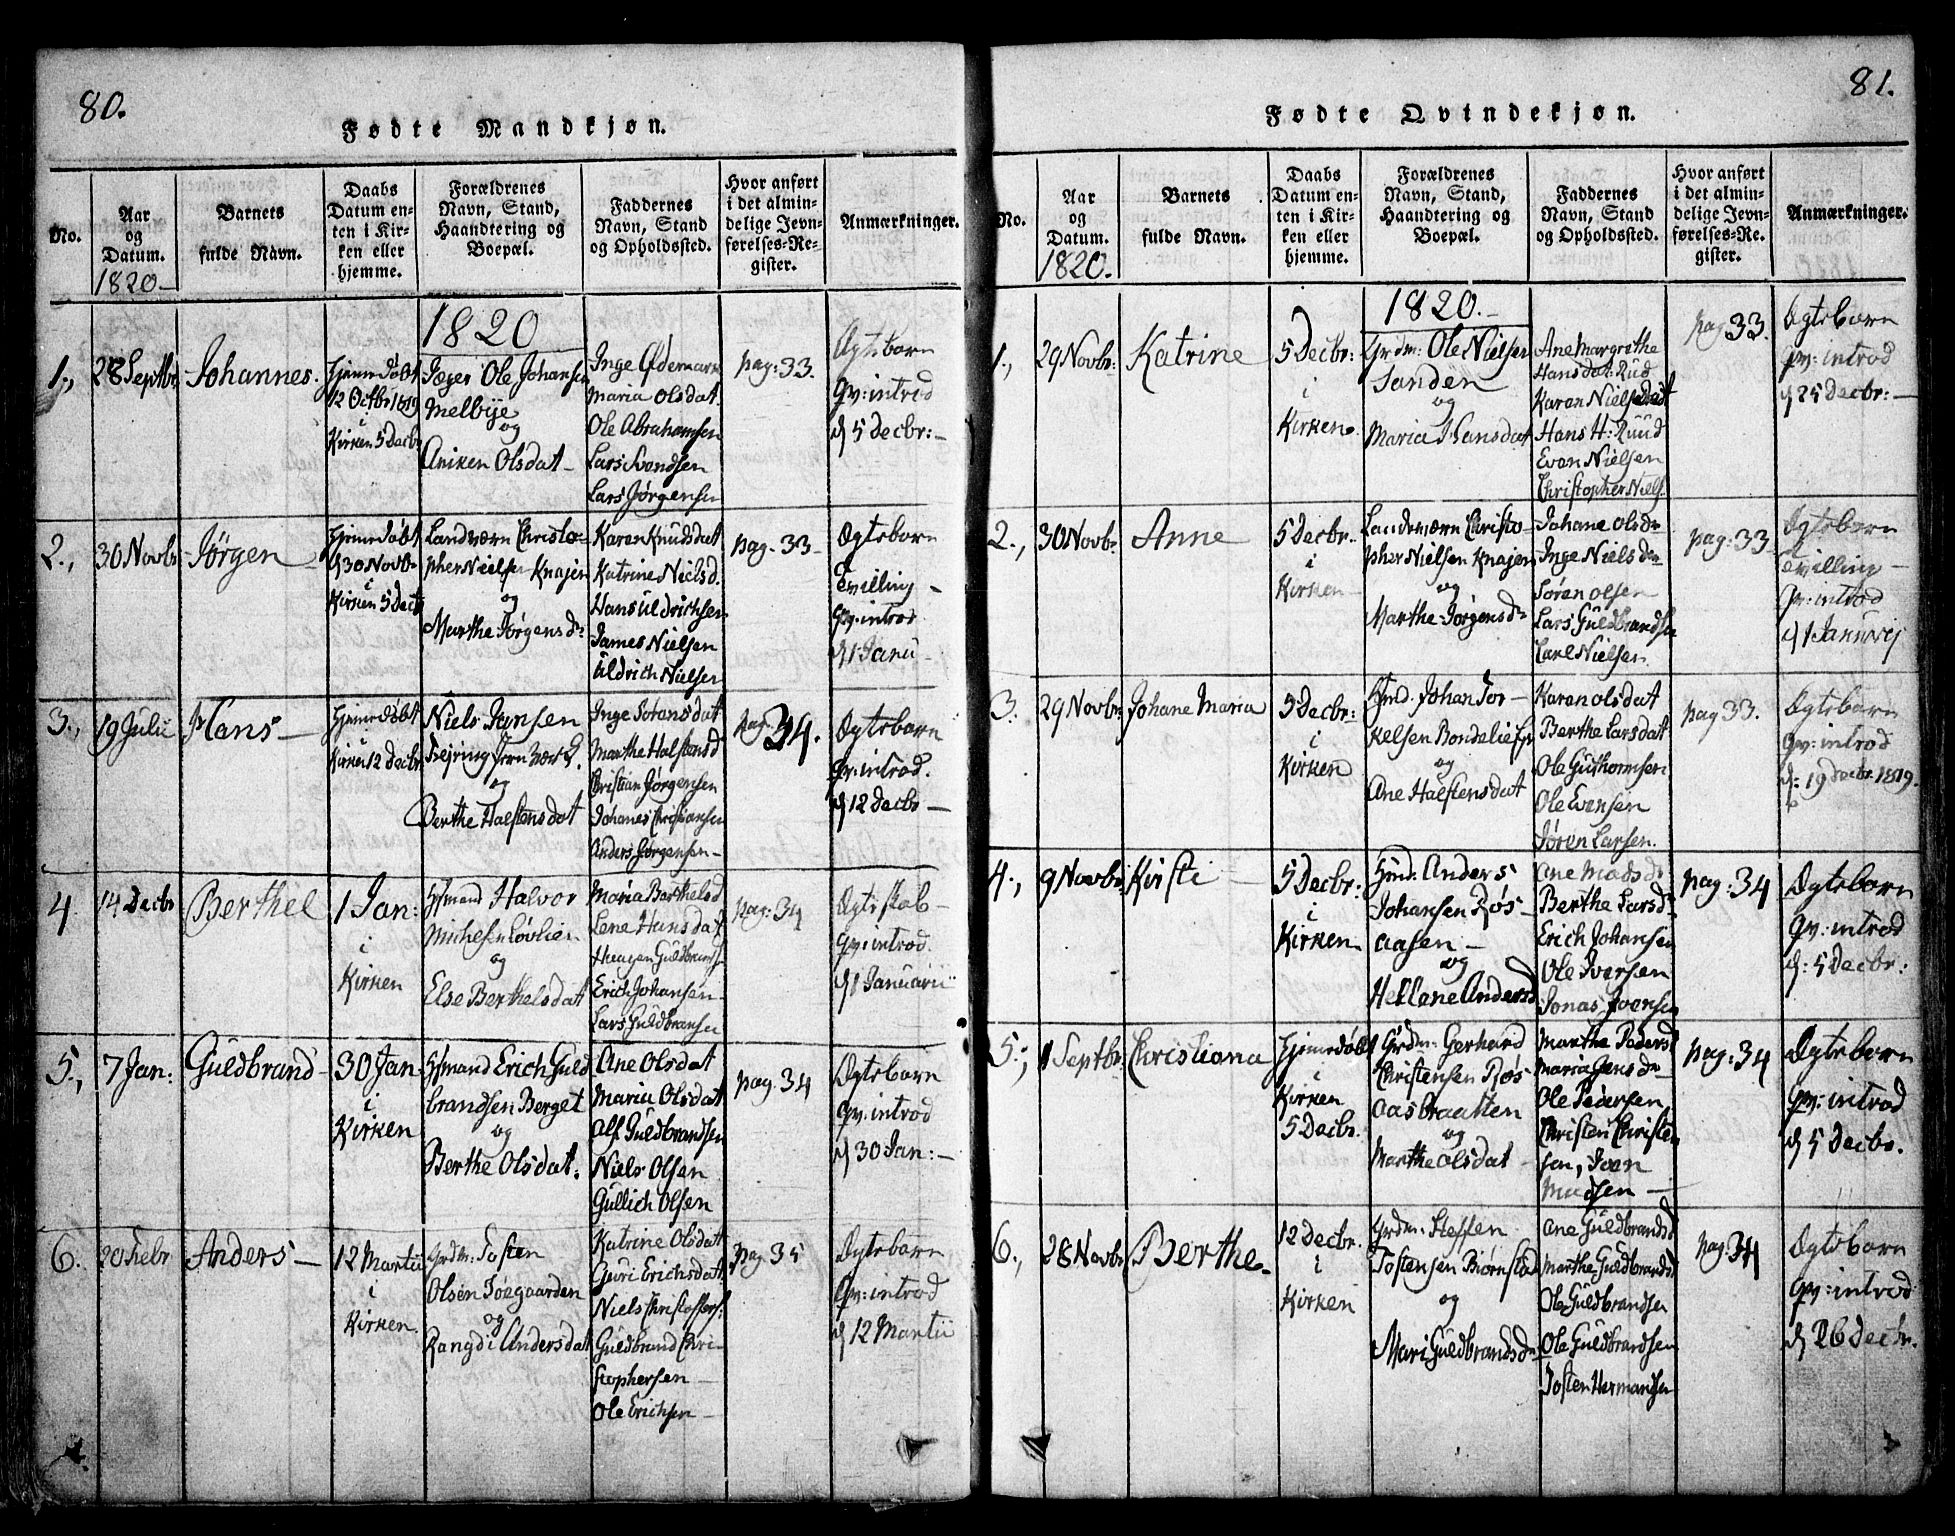 80.
Fødte Mandkjøn.
No.
Aar
og
Datum.
1820
Barnets
fulde Navn.
Daabs
Datum en-
ten i Kir-
ken eller
hjemme.
Forældrenes
Navn, Stand,
Haandtering og
Boepæl.
Faddernes
Navn, Stand
og Opholdssted.
Hvor anført
i det almin-
delige Jevn-
førelses-Re-
gister.
Anmærkninger.
1820
1.,
28 Septbr
Johannes.
Hjemedøbt
12 Octbr 1819
i
Kirken 5 Decbr
Jæger Ole Johansen
Melbye
og
Aniken Olsdat
Inge Ødemark
Maria Olsdat.
Ole Abrahamsen
Lars Svendsen
Lars Jørgensen
pag: 33.
Ægtebarn
qv: introd
d 5 Decbr:
2.,
30 Novbr
Jørgen
Hjemedøbt
d 30 Novb
i
Kirken 5 Decb
Landværn Christo-
pher Nielsen Knajen
og
Marthe Jørgensdr
Karen Knudsdat
Katrine Nielsd.
Hans Uldrichsen
James Nielsen
Uldrich Nielsen
pag. 33
Ægtebarn
Tvilling
qv: introd.
d 1 Janu
3.,
19 Julii
Hans
Hjemedøbt
Kirken 12 Decbr
Niels Jansen
og
Berthe Halstensdat
Inge Sørensdat
Marthe Halstensd
Christian Jørgensen
Johanes Christiansen
Anders Jørgensen
pag: 34.
Ægtebarn
qv: introd.
d 12 Decbr
4
14 Decbr
Berthel
1 Jan:
i
Kirken
Hsmand Halvor
Michelsen Løvlien
og
Else Berthelsdat
Maria Berthelsd
Lene Hansdat
Guldbrands
Erich Johansen
Lars Guldbransen
pag: 34
Ægteskab
qv: introd.
d 1 Januarii
5.,
7 Jan:
Guldbrand
30 Jan
i
Kirken
Hsmand Erich Guld
brandsen Berget
og
Berthe Olsdat.
Ane Olsdat
Maria Olsdat
Alf Guldbrandsen
Niels Olsen
Gullich Olsen
pag: 34
Ægtebarn
qv: introd
d 30 Jan:
6.
20 Febr
Anders
12 Martii
i
Kirken.
Grdm: Tosten
Olsen Toegaarden
og
Rangdi Andersdat
Katrine Olsdat
Guri Erichsdat
Niels Christoffers.
Guldbrand Chri-
stophersen
Ole Erichsen
pag: 35
Ægtebarn
qv: introd
d 12 Martii
81.
Fødte Qvindekjøn.
No.
Aar
og
Datum.
1820.
Barnets
fulde Navn.
Daabs
Datum en-
ten i Kir-
ken eller
hjemme.
Forældrenes
Navn, Stand,
Haandtering og
Boepæl.
Faddernes
Navn, Stand
og Opholdssted.
Hvor anført
i det almin-
delige Jevn-
førelses-Re-
gister.
Anmærkninger.
1820.
1.,
29 Novbr:
Katrine
5 Decbr:
i
Kirken
Grdm: Ole Nielsen
Sanden
og
Maria Hansdat
Ane Margrethe
Hansdat: Rud
Karen Nielsdat
Hans H: Ruud
Even Nielsen
Christopher Niels.
pag: 33.
Ægtebarn
qv: introd
d 25 Decbr:
2.,
30 Novbr.
Anne
5 Decbr.
i
Kirken
Landværn Christo-
pher Nielsen Knajen
og
Marthe Jørgensdr
Johane Olsdr
Inge Nielsdr
Søren Olsen
Lars Guldbrandsen
Carl Nielsen.
pag: 33
Ægtebarn
Tvilling
qv: introd
d 1 Januarij
3.
29 Novbr:
Johane Maria
5 Decbr:
i
Kirken
Hsmd. Johan Tor-
kelsen Bondelie
og
Ane Halstensdat
Karen Olsdat
Berthe Larsdat
Ole Guthormsen
Ole Evensen
Jøren Larsen.
pag 33.
Ægtebarn
qv: introd
d: 19 Decbr. 1819.
4.,
9 Novbr
Kirsti
5 Decbr:
i
Kirken
Hsmd: Anders
Johansen Røs-
aasen
og
Hellene Andersd
Ane Madsd
Berthe Larsdr
Erich Johansen
Ole Iversen
Jonas Iversen
pag: 34
Ægtebarn
qv: introd
d: 5 Decbr:
5.,
1 Septbr:
Christiana
Hjemedøbt
i
Kirken
5 Decbr.
Grdm: Gerhard
Christensen Røs
aasbraatten
og
Marthe Olsdat
Marthe Pedersd
Maria Jensdr
Ole Pedersen
Christen Christen
sen, Iver
Madsen
pag: 34
Ægtebarn
qv: introd
d 5 Decbr.
6.,
28 Novbr
Berthe
12 Decbr.
i
Kirken
Grdm: Steffen
Tostensen Biørnstad
og
Mari Guldbrandsdr
Ane Guldbrandsd
Marthe Guldbrandsd
Ole Guldbrandsen
Ole Guldbrandsen
Tosten Hermansen
pag: 34
Ægtebarn
qv: introd
d 26 Decbr.